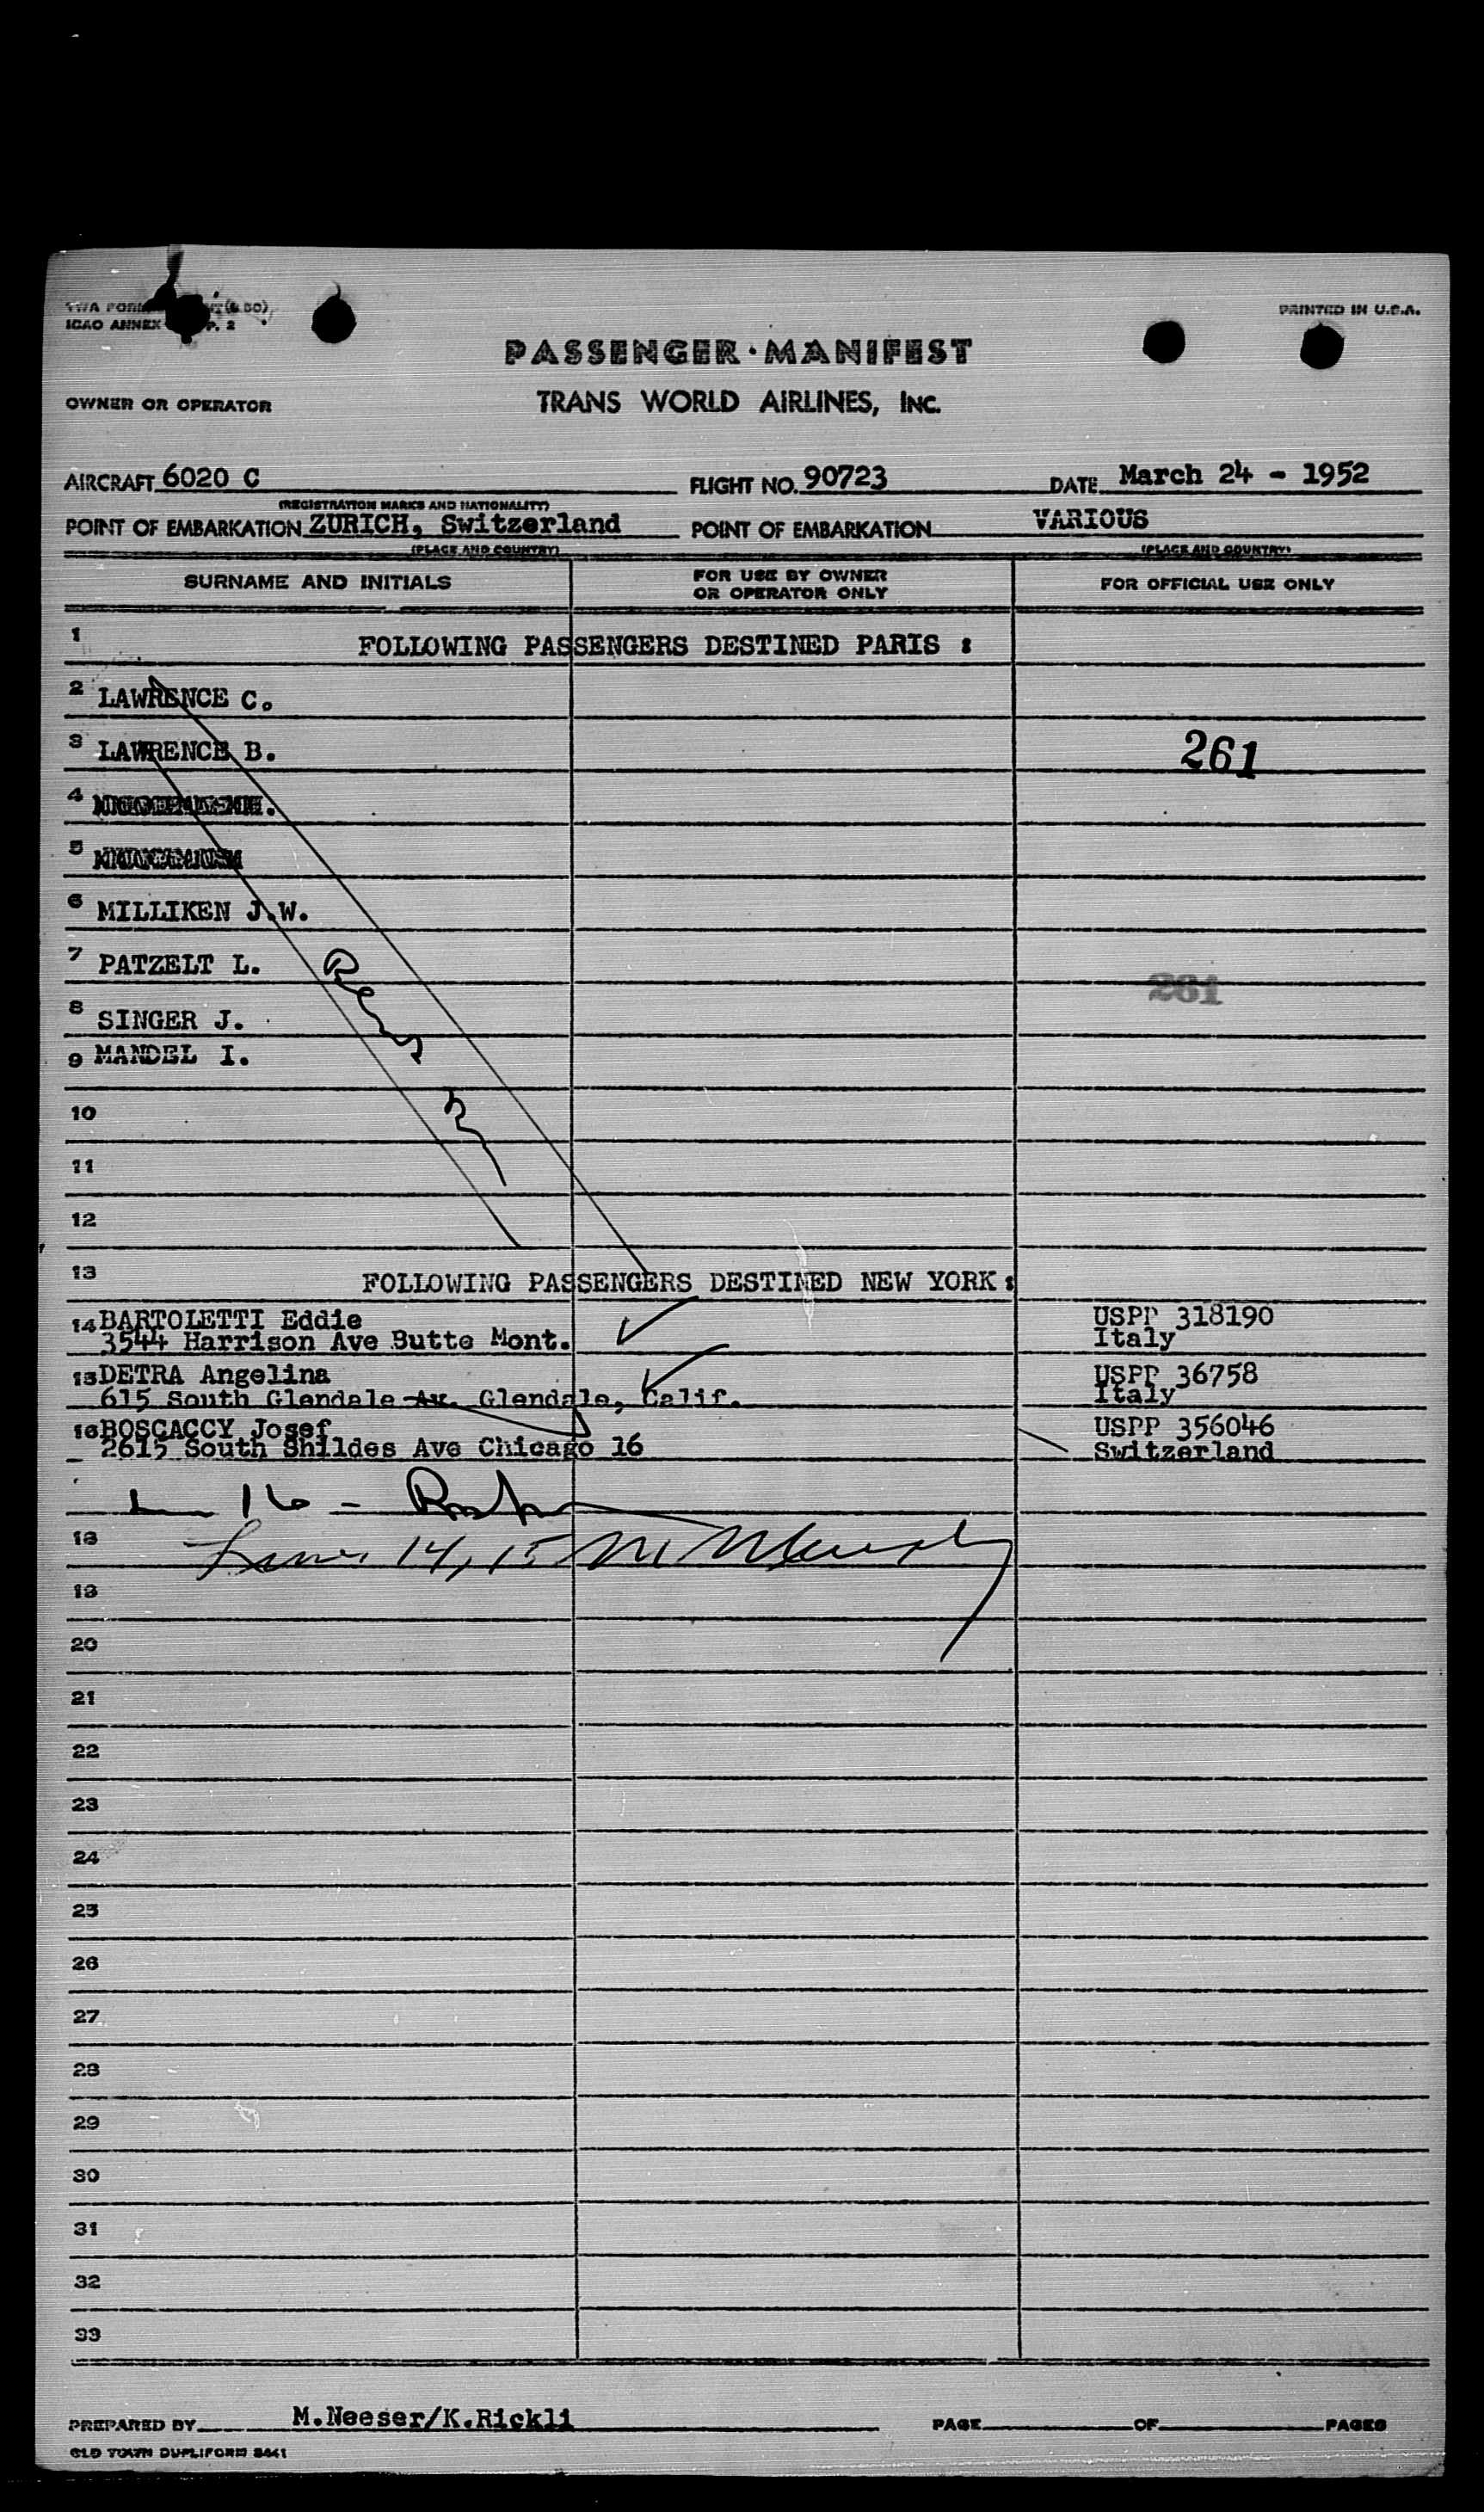 P. 2
ICAO ANNEX
PRINTED IN U.S.A.
PASSENGER·MANIFEST
OWNER OR OPERATOR
TRANS WORLD AIRLINES, INC.
AIRCRAFT 6020 C FLIGHT NO. 90723 DATE March 24 - 1952
(REGISTRATION MARKS AND NATIONALITY)
POINT OF EMBARKATION ZURICH, Switzerland POINT OF EMBARKATION VARIOUS
(PLACE AND COUNTRY) (PLACE AND COUNTRY)
SURNAME AND INITIALS FOR USE BY OWNER OR OPERATOR ONLY FOR OFFICIAL USE ONLY
1 FOLLOWING PASSENGERS DESTINED PARIS :
2 LAWRENCE C.
3 LAWRENCE B. 261
4
5
6 MILLIKEN J.W.
7 PATZELT L. 261
8 SINGER J.
9 MANDEL I.
10
11
12
13 FOLLOWING PASSENGERS DESTINED NEW YORK :
14 BARTOLETTI Eddie USPP 318190
3544 Harrison Ave Butte Mont. Italy
15 DETRA Angelina USPP 36758
615 South Glendale Av. Glendale, Calif. Italy
16 BOSCACCY Josef USPP 356046
2615 South Shildes Ave Chicago 16 Switzerland
16 -
18 Lines 14, 15
19
20
21
22
23
24
25
26
27
28
29
30
31
32
33
PREPARED BY M.Neeser/K.Rickli PAGE OF PAGES
OLD TOWN DUPLIFORM 8441